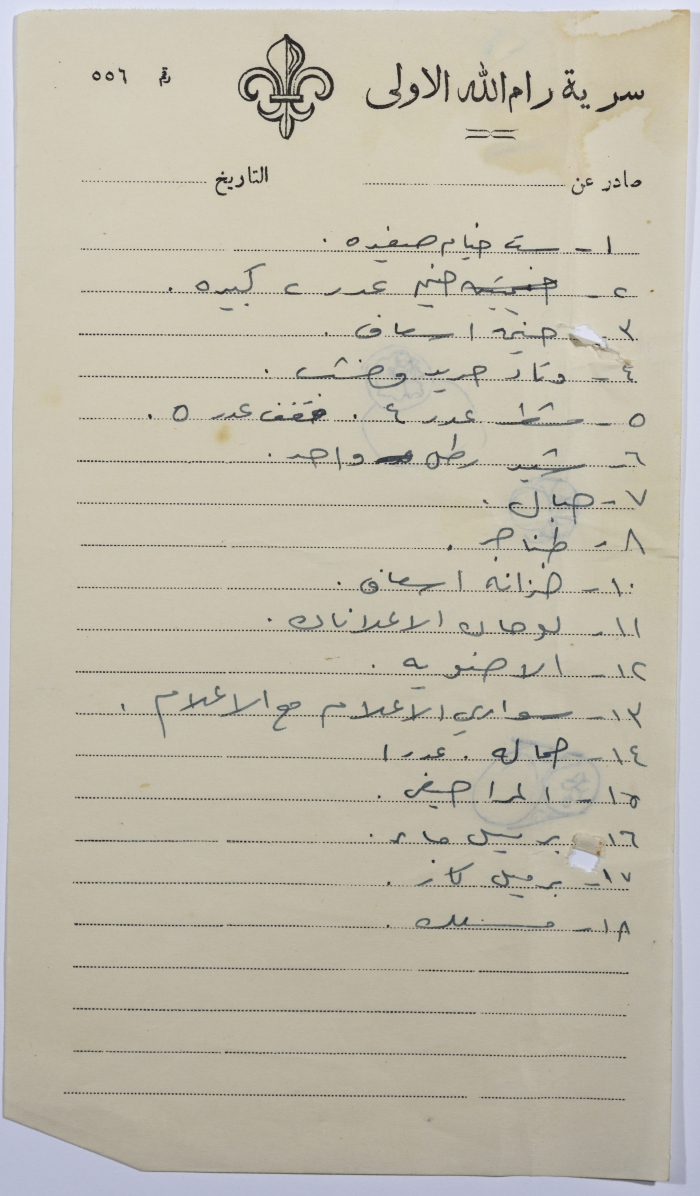 سرية رام الله الاولى
رقم ٥٥٦
صادر عن التاريخ
١- ست خيام صغيره .
٢- خيم عدد ٢ كبيره .
٣- خيمة اسعاف .
٤- وتاد حديد وخشب .
٥- مشط عدد ٤ . قفف عدد ٥ .
٦- شيد رطل واحد .
٧- حبال .
٨- طناجر .
١٠- خزانة اسعاف .
١١- لوحات الاعلانات .
١٢- الاضويه .
١٣- سواري الاعلام مع الاعلام .
١٤- حماله . عدد ١
١٥- المراحيض .
١٦- برميل ماء .
١٧- برميل كاز .
١٨-